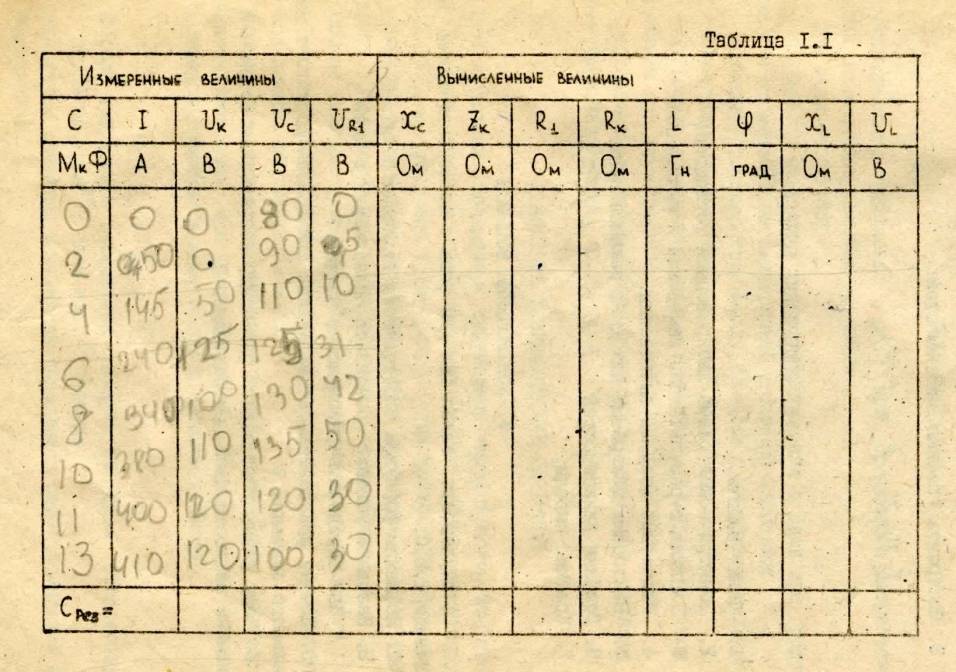 Таблица I.I
Измеренные величины Вычисленные величины
C I Uк Uс UR1 Xс Zк R1 Rк L φ XL UL
МкФ А В В В Ом Ом Ом Ом Гн град Ом В
0 0 0 80 0
2 50 0 90
4 145 50 110 10
6 240 125 125 31
8 340 100 130 42
10 380 110 135 50
11 400 120 120 30
13 410 120 100 30
Cрез=